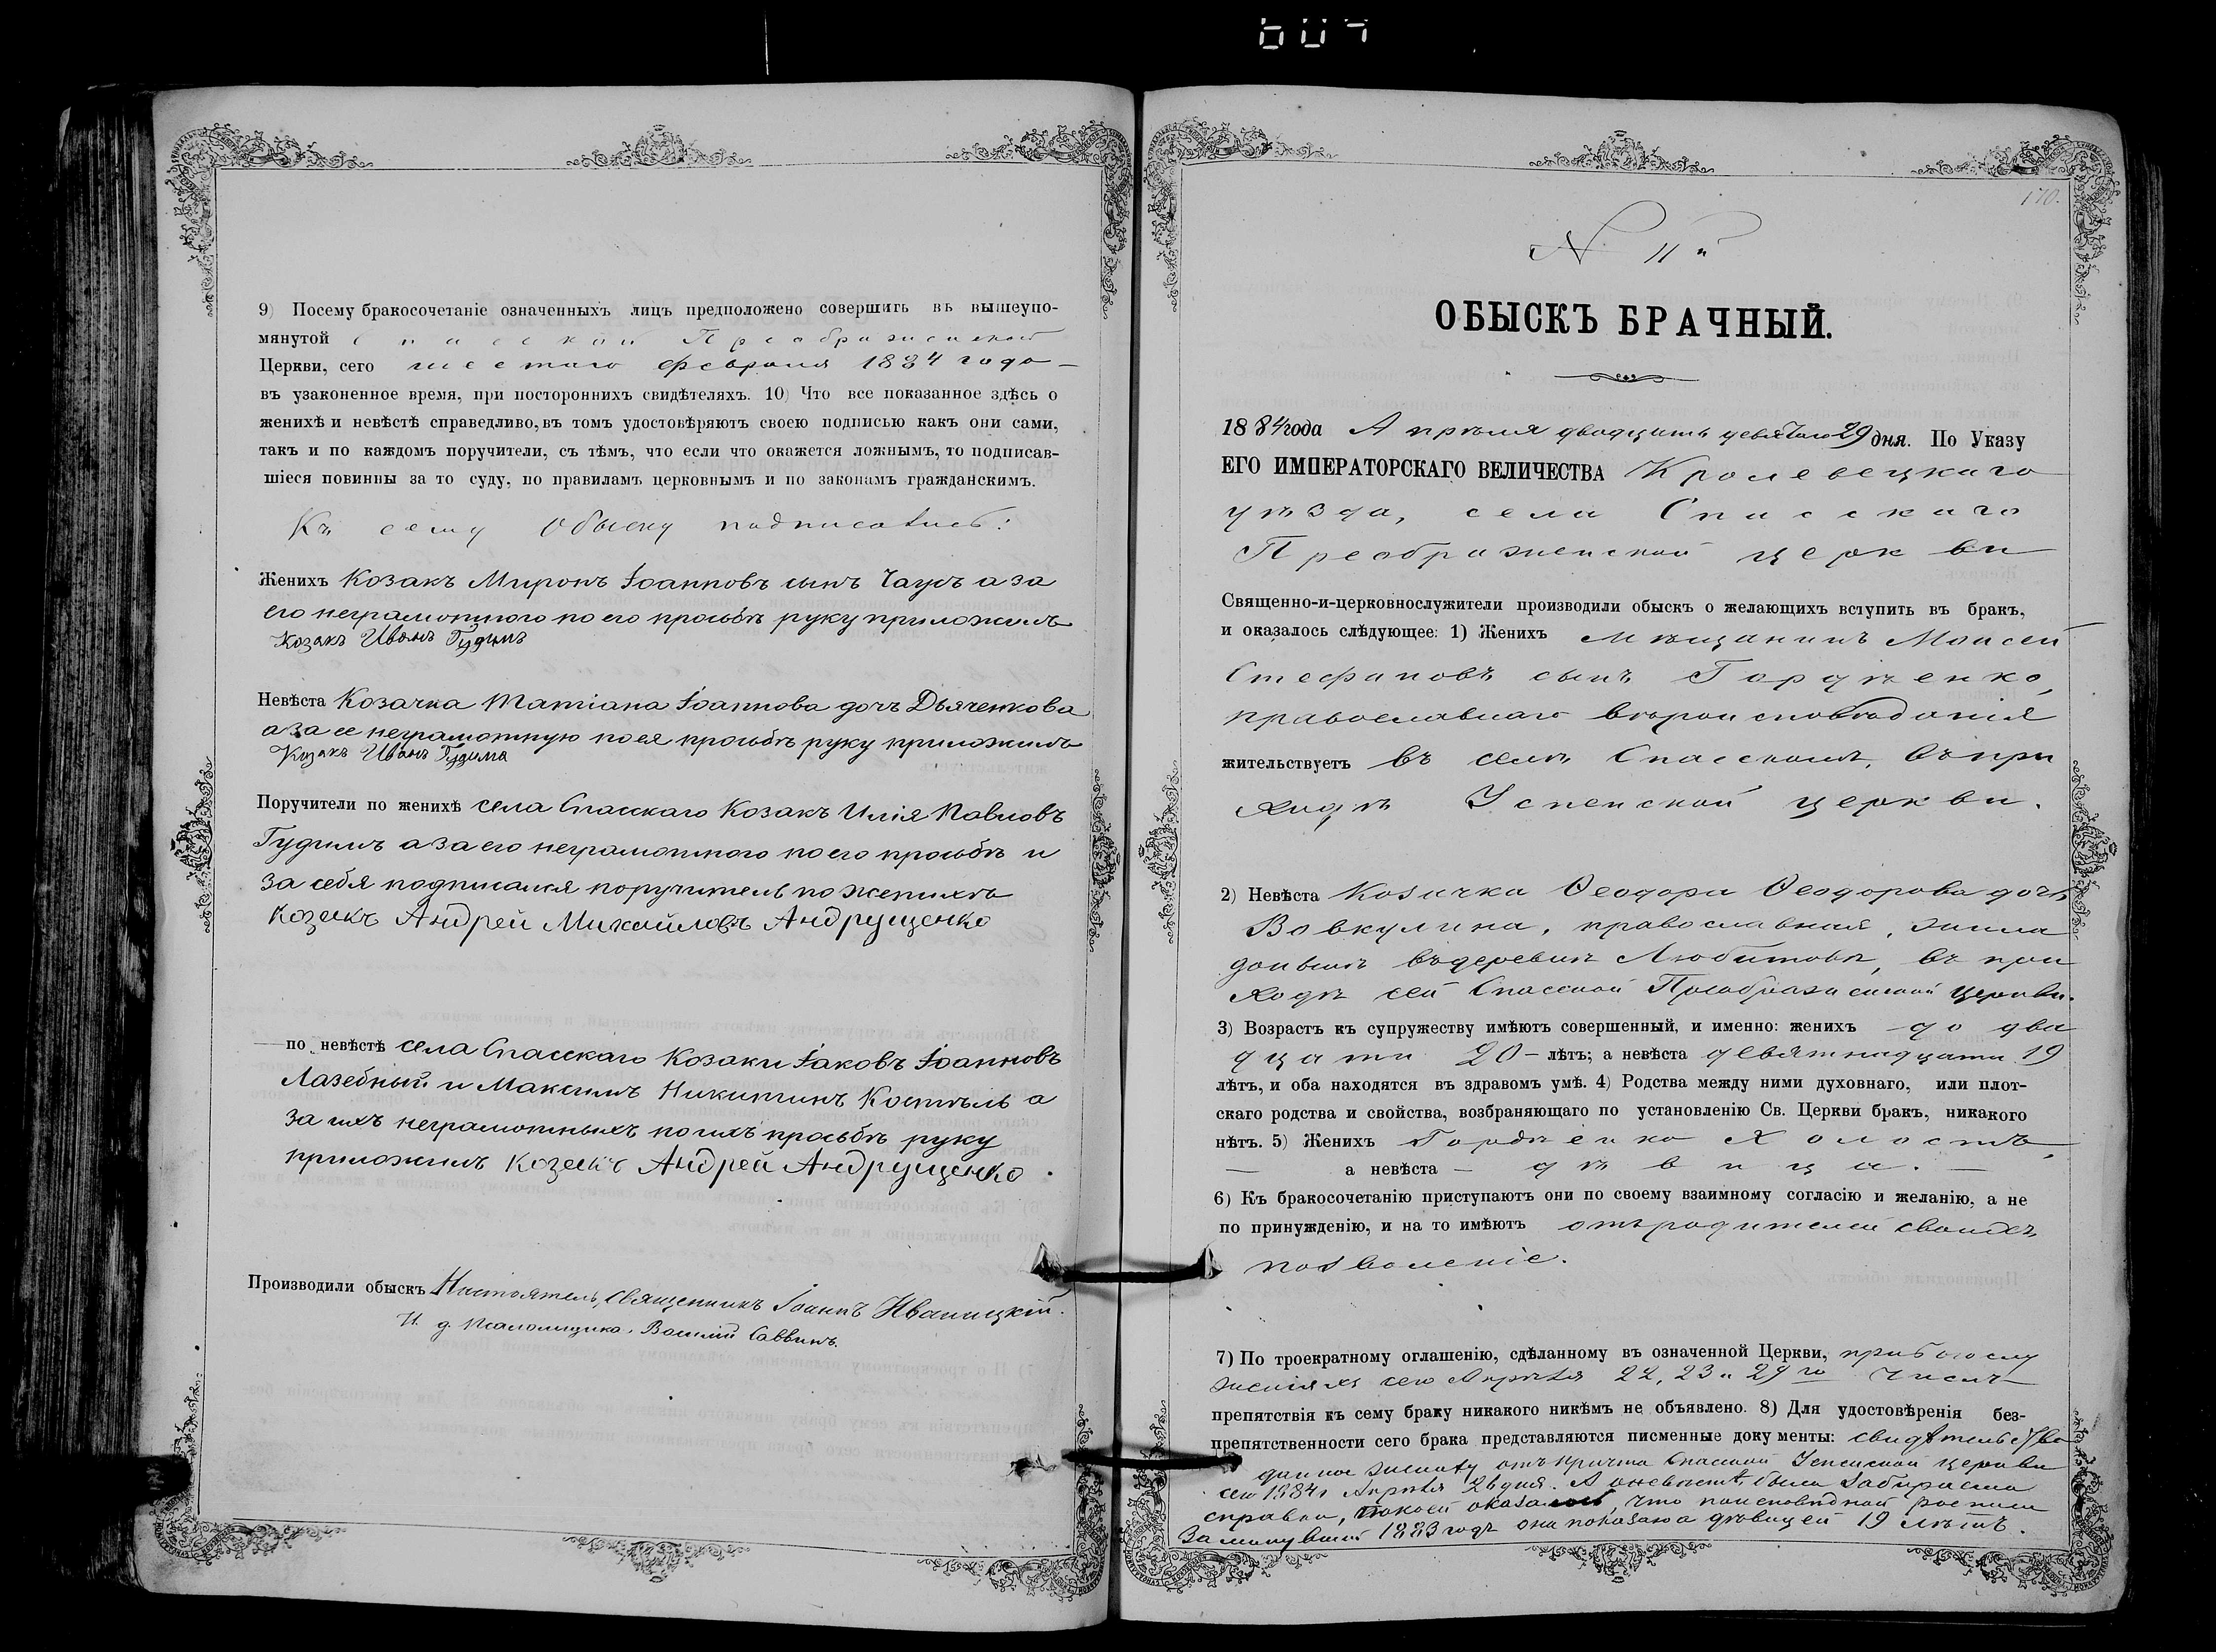 9) Посему бракосочетаніе означенныхъ лицъ предположено совершить въ вышеупо-
мянутой Спасской Преображенской
Церкви, сего шестаго февраля 1884 года —
въ узаконенное время, при постороннихъ свидѣтеляхъ. 10) Что все показанное здѣсь о
женихѣ и невѣстѣ справедливо, въ томъ удостовѣряютъ своею подписью какъ они сами,
такъ и по каждомъ поручители, съ тѣмъ, что если что окажется ложнымъ, то подписав-
шіеся повинны за то суду, по правиламъ церковнымъ и по законамъ гражданскимъ.
Къ сему обыску подписались:
Женихъ Козакъ Миронъ Іоанновъ сынъ Чаусъ а за
его неграмотного по его прозьбѣ руку приложилъ
Козакъ Иванъ Гудимъ
Невѣста Козачка Татіана Іоаннова дочь Дьяченкова
а за ее неграмотную по ея прозьбѣ руку приложилъ
Козакъ Иванъ Гудима
Поручители по женихѣ села Спасскаго Козакъ Илія Павловъ
Гудимъ а за его неграмотного по его прозьбѣ и
за себя подписался поручитель по женихѣ
козакъ Андрей Михайловъ Андрущенко
по невѣстѣ села Спасскаго Козаки Іаковъ Іоанновъ
Лазебный и Максимъ Никитинъ Костыль а
за ихъ неграмотныхъ по ихъ прозьбѣ руку
приложилъ козакъ Андрей Андрущенко.
Производили обыскъ Настоятель, Священникъ Іоаннъ Иваницкій.
И. д. Псаломщика Василій Саввинъ.
170.
N 11й
ОБЫСКЪ БРАЧНЫЙ.
1884 года Апрѣля двадцать девятаго 29 дня. По Указу
ЕГО ИМПЕРАТОРСКАГО ВЕЛИЧЕСТВА Кролевецкаго
уѣзда, села Спасскаго
Преображенской церкви
Священно-и-церковнослужители производили обыскъ о желающихъ вступить въ бракъ,
и оказалось слѣдующее: 1) Женихъ мѣщанинъ Моисей
Стефановъ сынъ Гордѣенко,
православнаго вѣроисповѣданія
жительствуетъ въ селѣ Спасскомъ, въ при
ходѣ Успенской церкви.
2) Невѣста Козачка Ѳеодора Ѳеодорова дочь
Вовкулина, православная, жила
донынѣ въ деревнѣ Любитовѣ, въ при
ходѣ сей Спасской Преображенской церкви.
3) Возрастъ къ супружеству имѣютъ совершенный, и именно: женихъ – до два
дцати 20 – лѣтъ; а невѣста девятнадцати 19
лѣтъ, и оба находятся въ здравомъ умѣ. 4) Родства между ними духовнаго, или плот-
скаго родства и свойства, возбраняющаго по установленію Св. Церкви бракъ, никакого
нѣтъ. 5) Женихъ Гордѣенко холостъ,
— а невѣста – дѣвица. —
6) Къ бракосочетанію приступаютъ они по своему взаимному согласію и желанію, а не
по принужденію, и на то имѣютъ отъ родителей своихъ
позволеніе.
7) По троекратному оглашенію, сдѣланному въ означенной Церкви, при богослу
женіяхъ сего Апрѣля 22, 23 и 29го чиселъ
препятствія къ сему браку никакого никѣмъ не объявлено. 8) Для удостовѣренія без-
препятственности сего брака представляются писменные документы: свидѣтельство
данное жениху отъ причта Спасской Успенской церкви
сего 1884 г Апрѣля 26 дня. А о невѣстѣ была забираема
справка, по коей оказалось, что по исповѣдной росписи
За минувшій 1883 годъ она показана дѣвицей 19 лѣтъ.